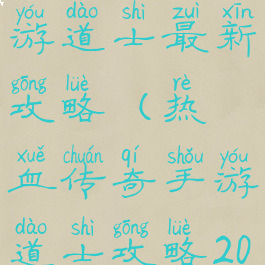 yóu dào shì zuì xīn
游道士最新
gōng lüè rè
攻略(热
xuě chuán qí shǒu yóu
血传奇手游
dào shì gōng lüè
道士攻略20